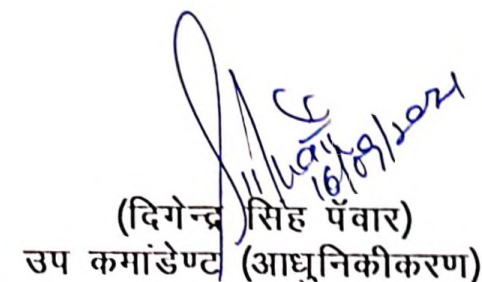 16/09/2021
(दिगेन्द्र सिंह पॅवार)
उप कमांडेण्ट (आधुनिकीकरण)